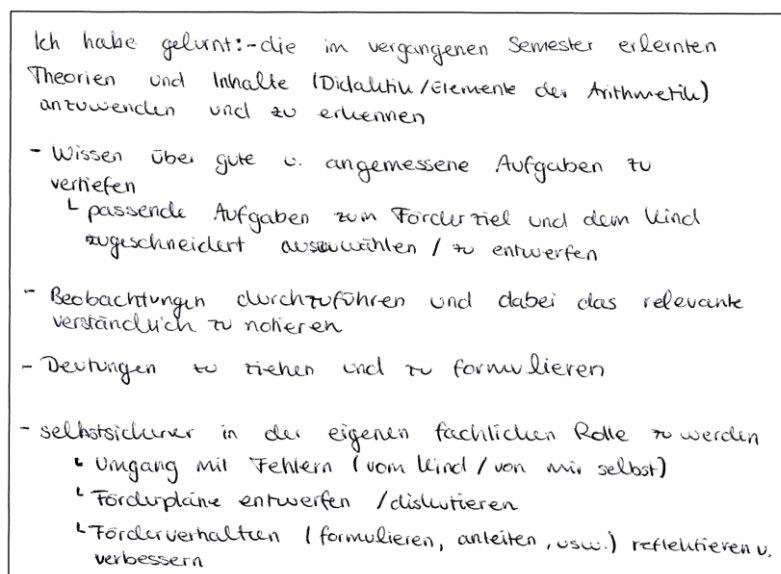 Ich habe gelernt: - die im vergangenen Semester erlernten
Theorien und Inhalte (Didaktik / Elemente der Arithmetik)
anzuwenden und zu erkennen
- Wissen über gute u. angemessene Aufgaben zu
vertiefen
└ passende Aufgaben zum Förderziel und dem Kind
zugeschneidert auszuwählen / zu entwerfen
- Beobachtungen durchzuführen und dabei das relevante
verständlich zu notieren
- Deutungen zu ziehen und zu formulieren
- selbstsicherer in der eigenen fachlichen Rolle zu werden
└ Umgang mit Fehlern (vom Kind / von mir selbst)
└ Förderpläne entwerfen / diskutieren
└ Förderverhalten (formulieren, anleiten, usw.) reflektieren u.
verbessern